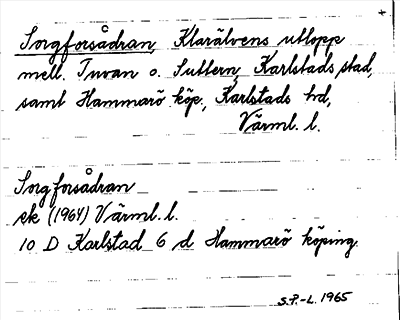 Sorgforsådran, Klarälvens utlopp
mell. Tuvan o. Suttern, Karlstads stad,
samt Hammarö köp., Karlstads hd,
Värml. l.
Sorgforsådran
ek (1964) Värml. l.
10 D Karlstad 6 d Hammarö köping.
S.P.-L. 1965